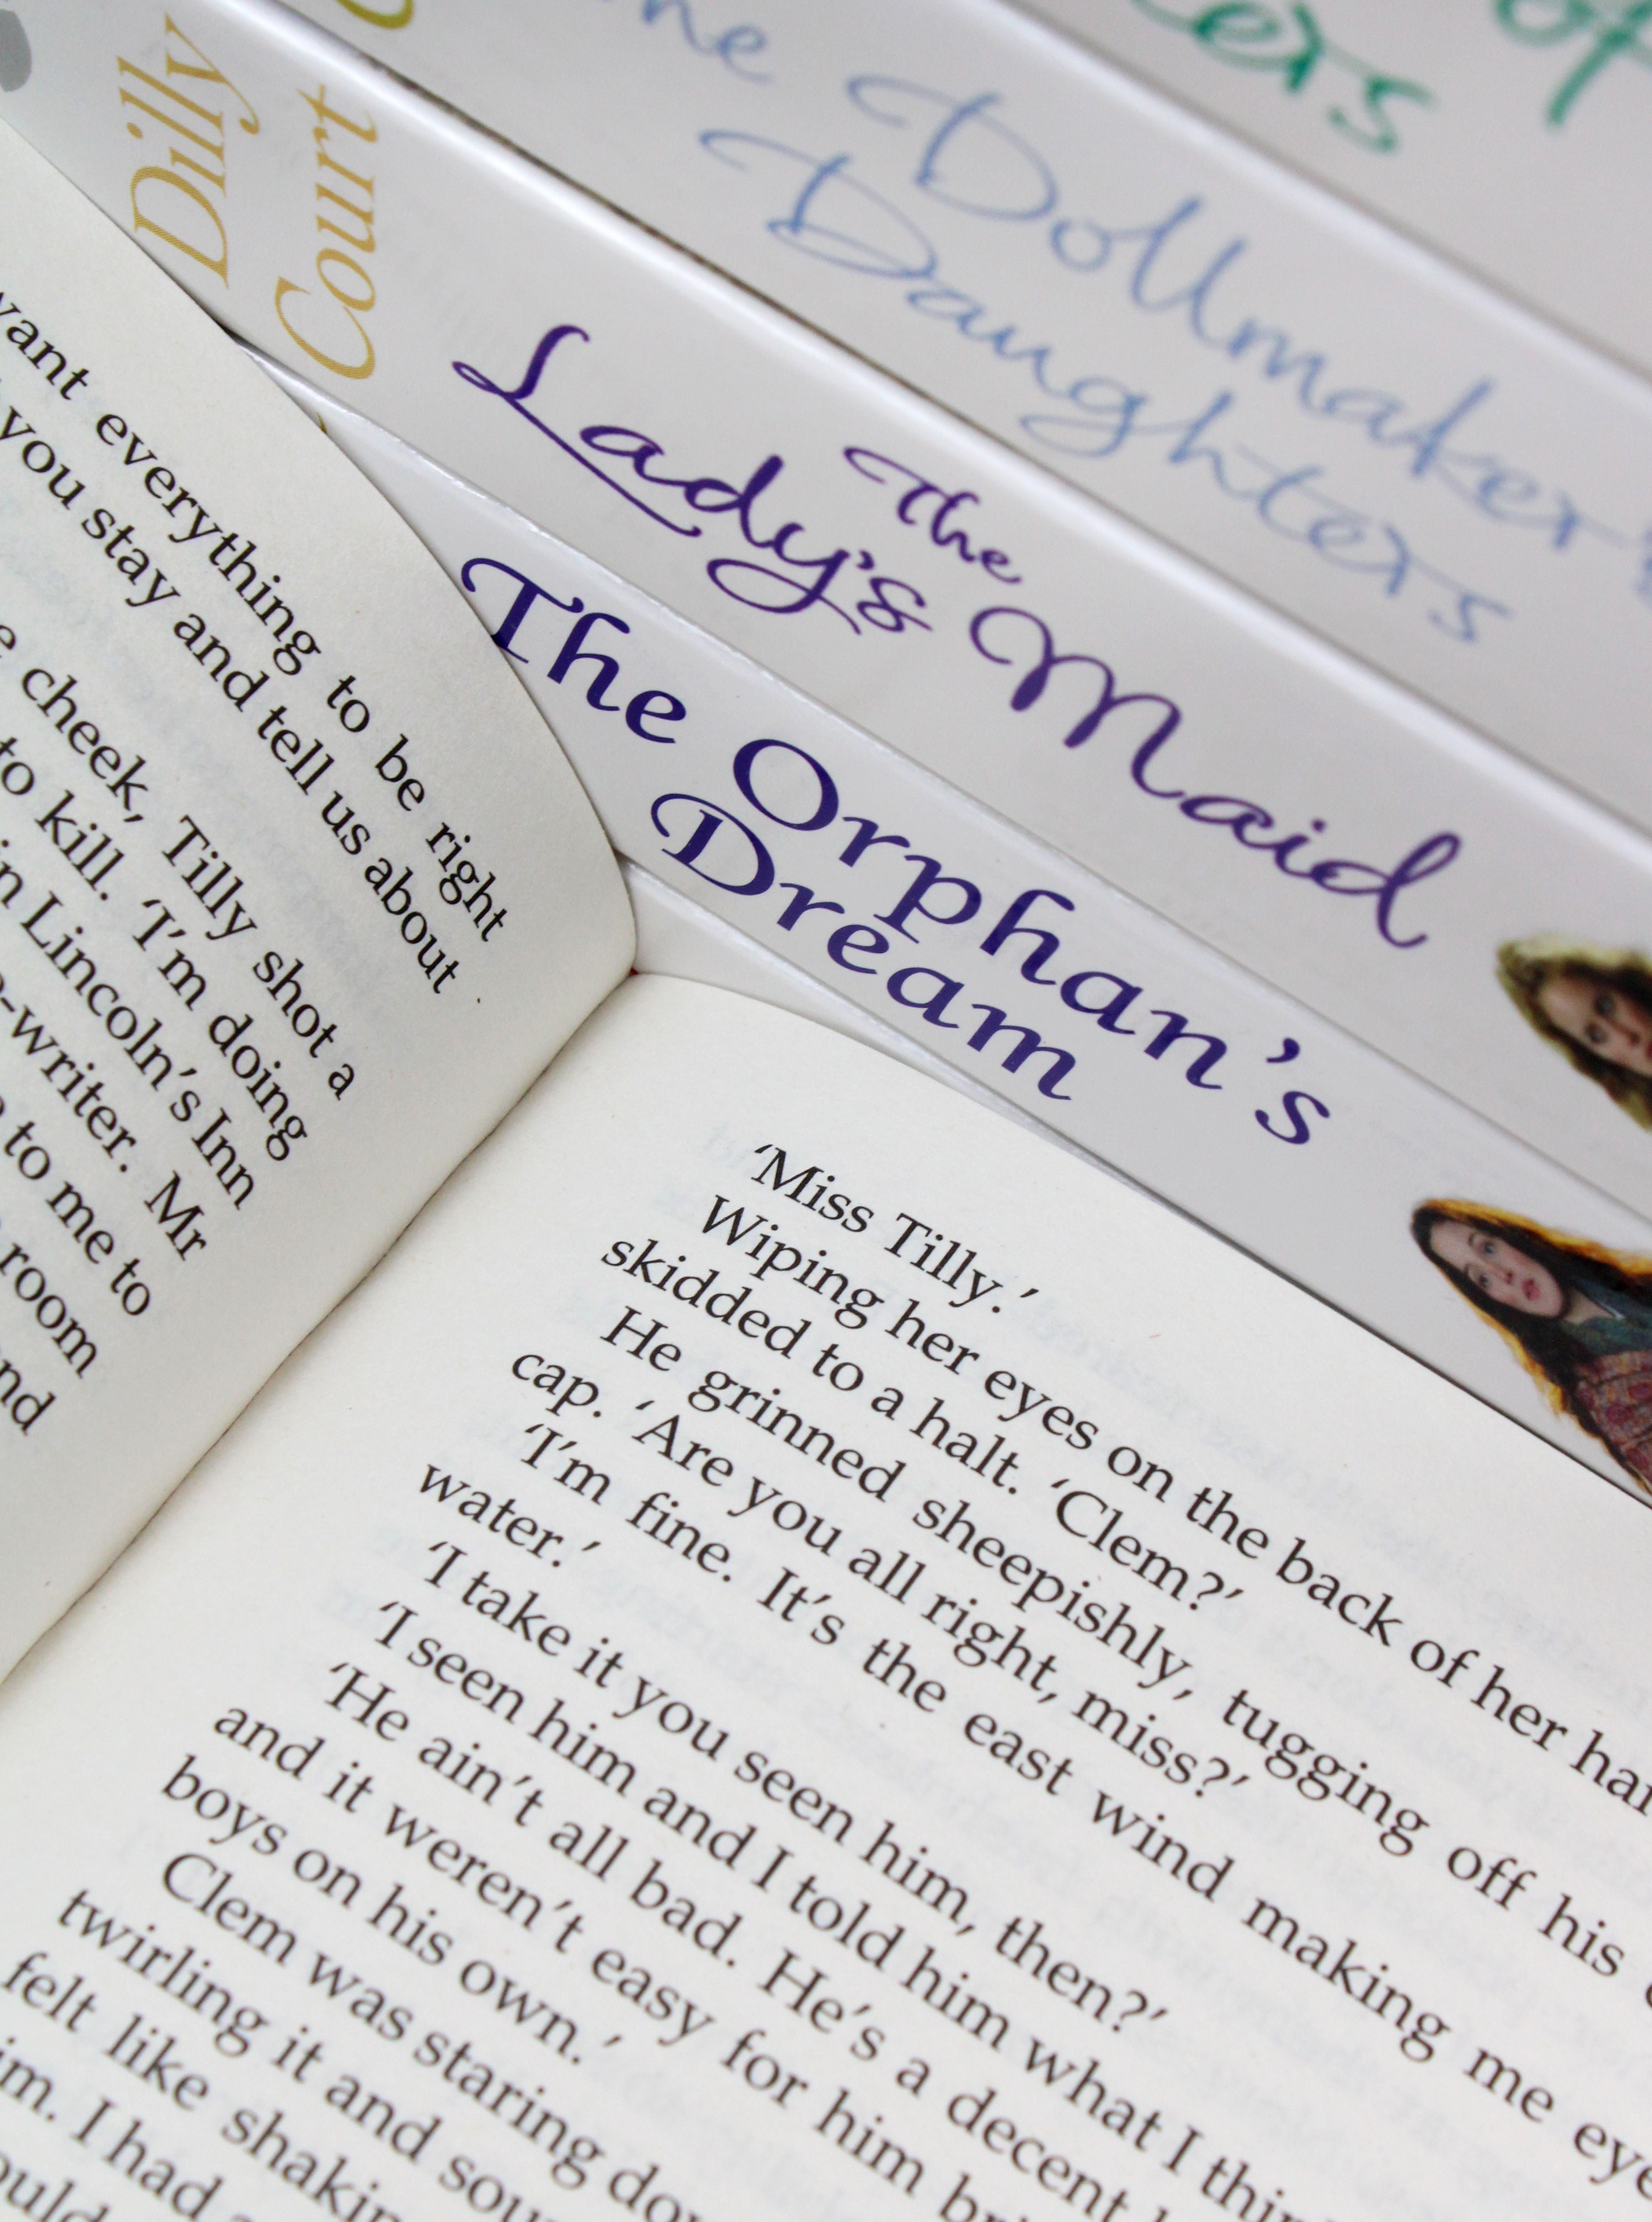 of
ers
Dollmaker's
Daughters
Dilly
Court
The
Lady's Maid
The Orphan's
Dream
want everything to be right
you stay and tell us about
cheek, Tilly shot a
to kill. 'I'm doing
in Lincoln's Inn
-writer. Mr
to me to
room
'Miss Tilly.'
Wiping her eyes on the back of her
skidded to a halt. 'Clem?'
He grinned sheepishly, tugging off his
cap. 'Are you all right, miss?'
'I'm fine. It's the east wind making me
water.'
'I take it you seen him, then?'
'I seen him and I told him what I
'He ain't all bad. He's a decent
and it weren't easy for him
boys on his own.'
Clem was staring
twirling it and
felt like
I had